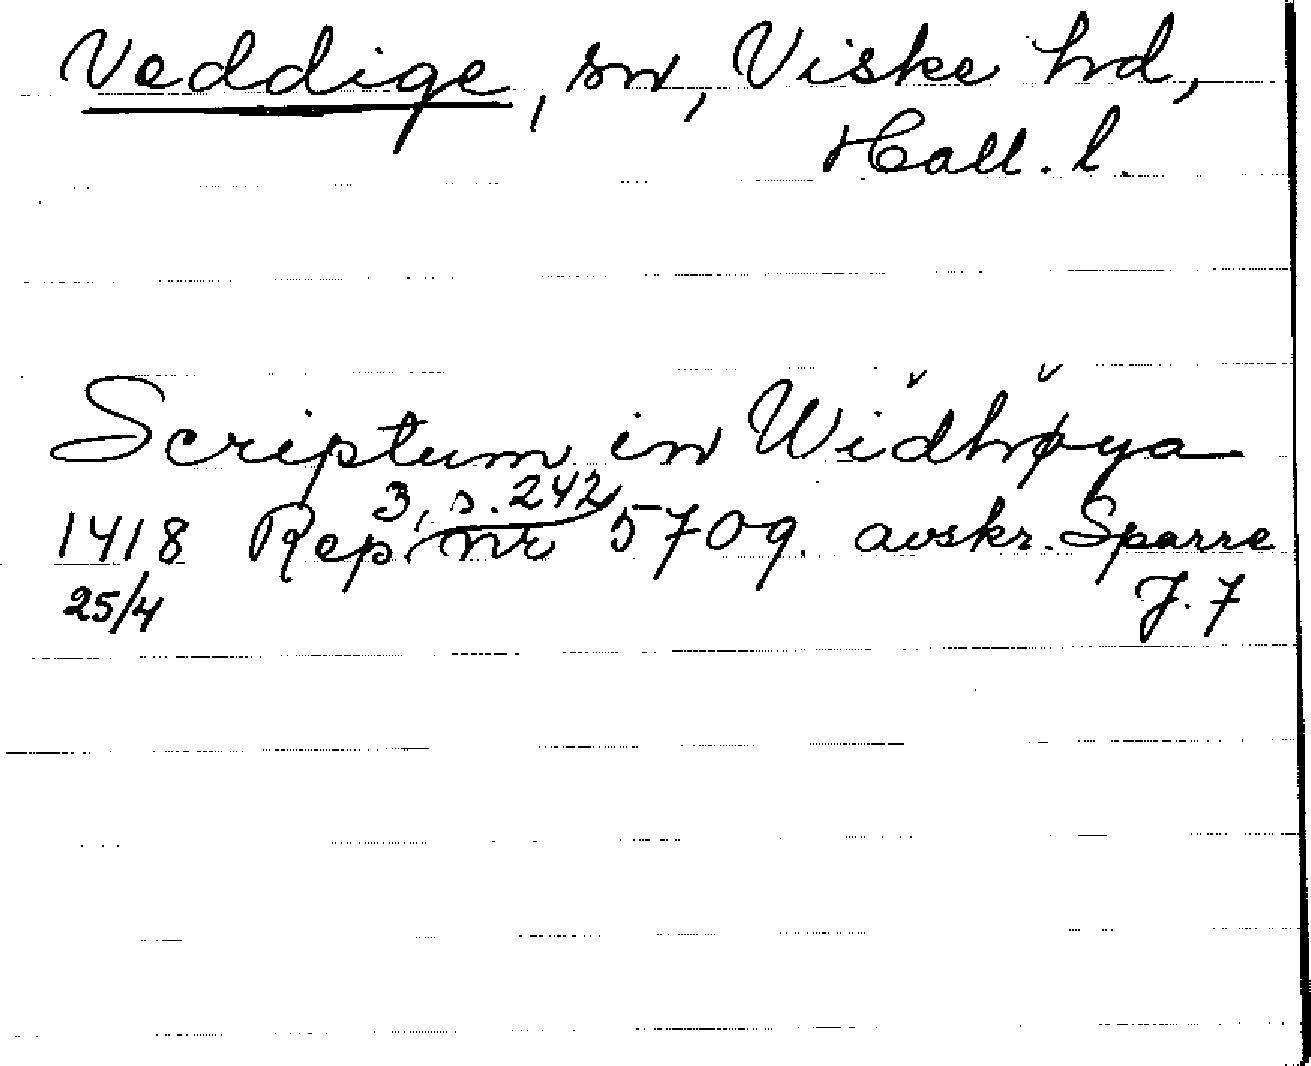 Veddige, sn, Viske hd,
Hall. l.
Scriptum in Widhøya
3, s. 242
1418 Rep nr 5709. avskr. Sparre
25/4 J. 7